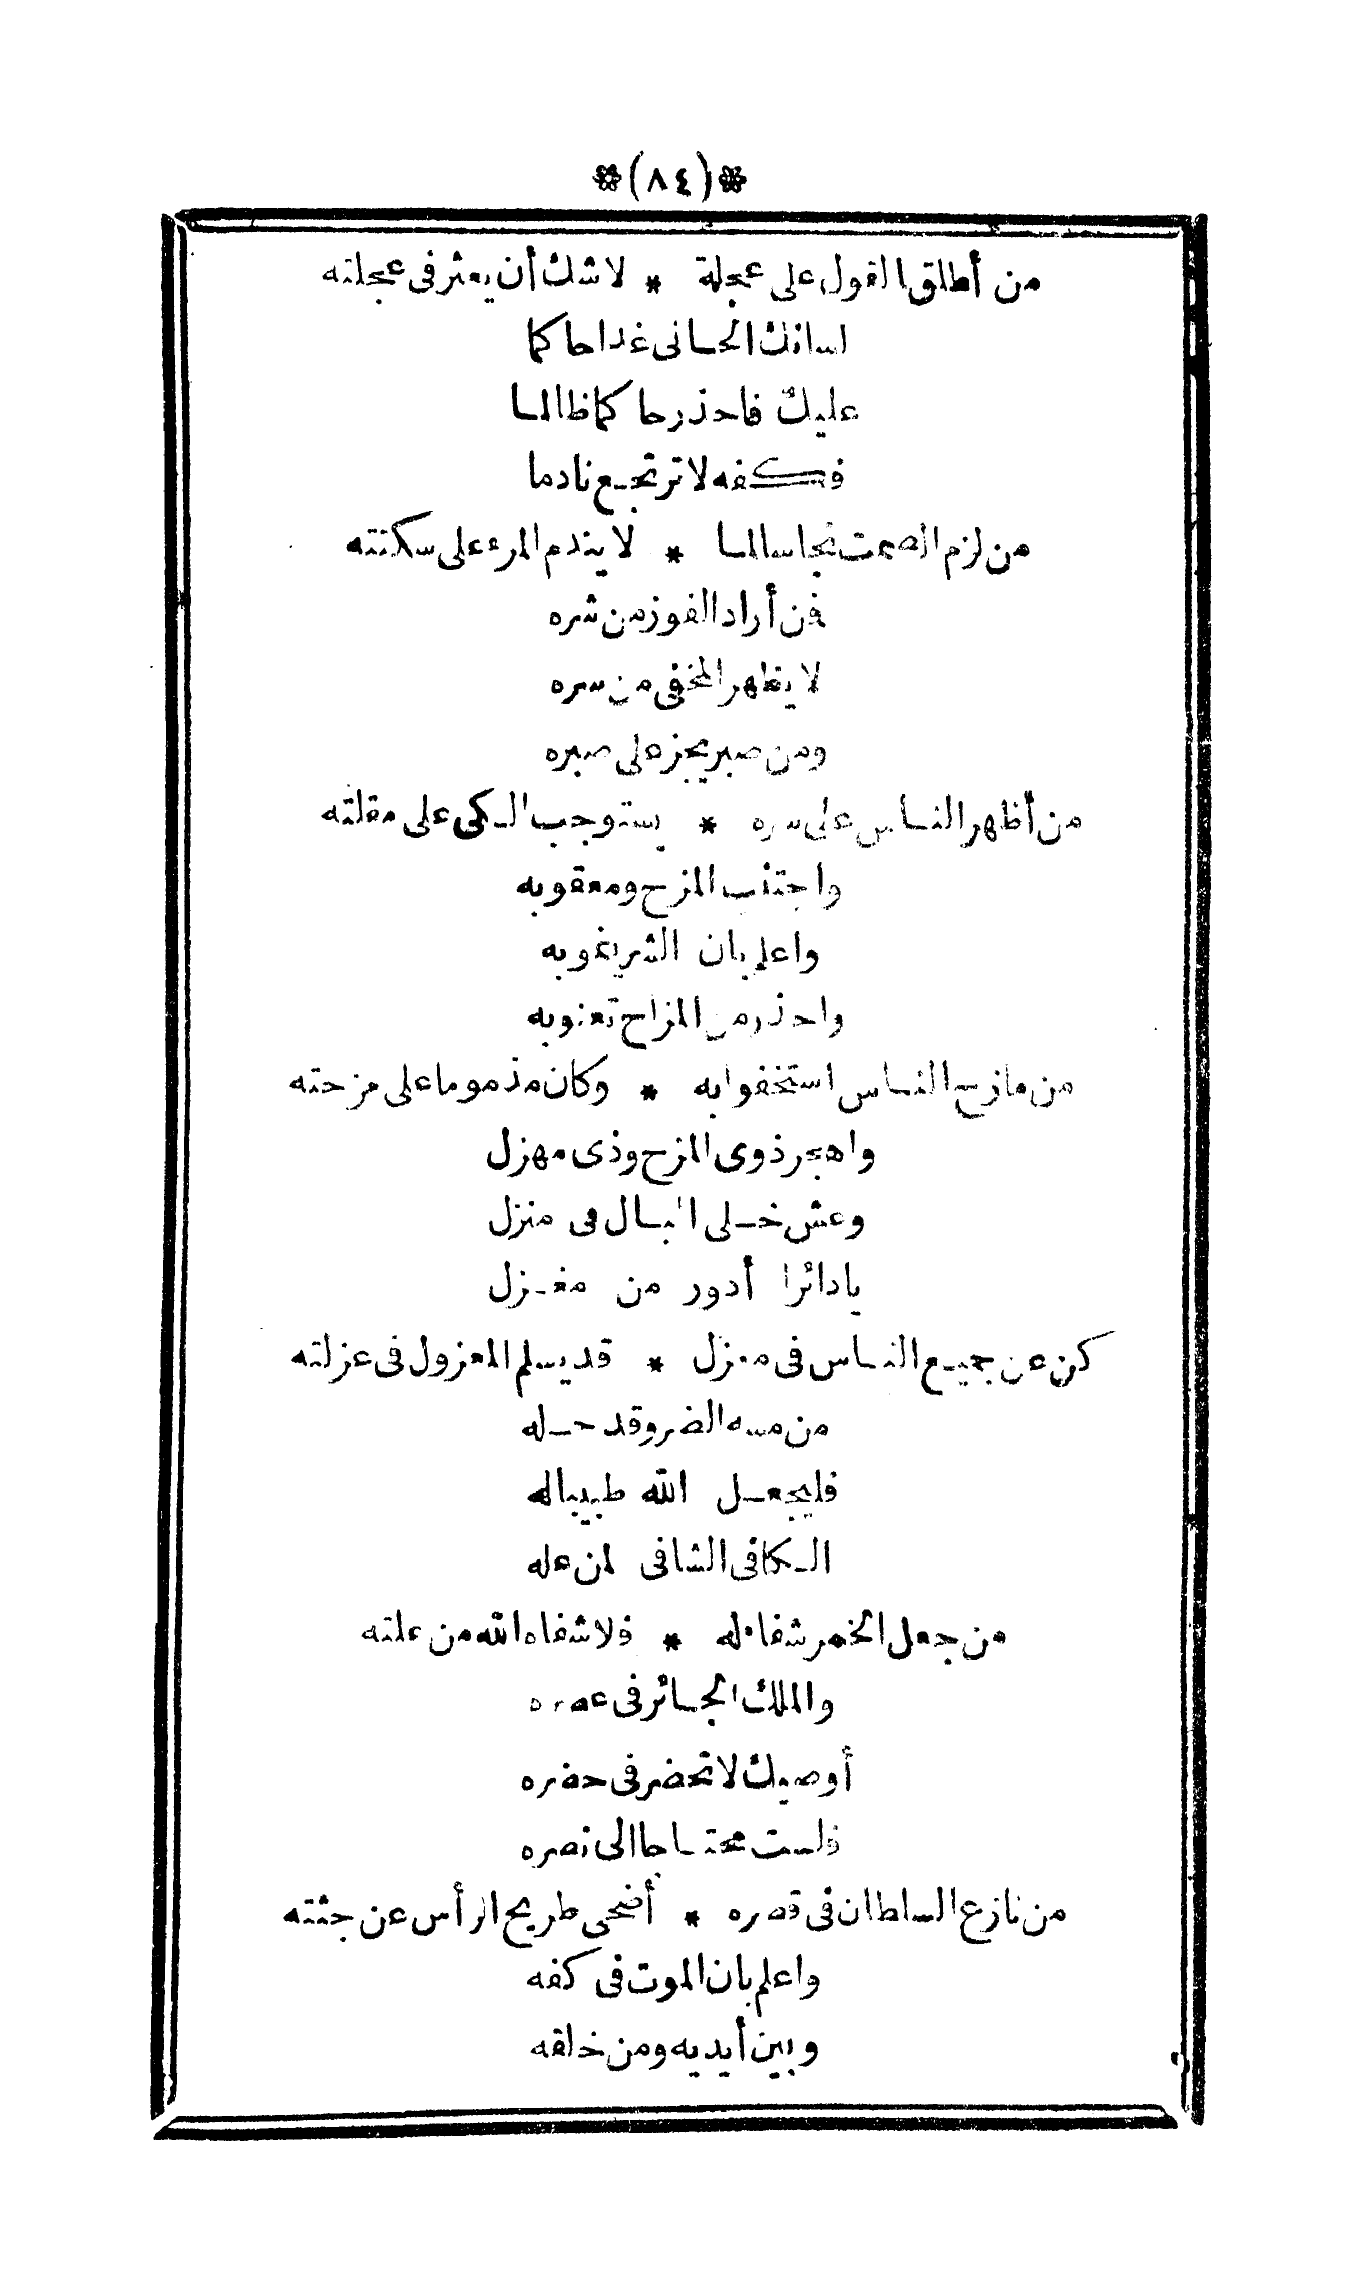 ❊(٨٤)❊
من أطلق القول على عجلة * لاشك أن يعثر فى عجلته
لسانك الجانى غدا حاكما
عليك فاحذر حاكما ظالما
فكفه لا ترتجع نادما
من لزم الصمت نجا سالما * لا يندم المرء على سكتته
فمن أراد الفوز من شره
لا يظهر المخفى من سره
ومن صبر يجز على صبره
من أظهر الناس على سره * يستوجب الكى على مقلته
واجتنب المزح ومعقوبه
واعلم بان الشر يغموبه
واحذر من المزاح تعنوبه
من مازح الناس استخفوا به * وكان مذموما على مزحته
واهجر ذوى المزح وذى مهزل
وعش خلى البال فى منزل
يا دائرا أدور من مغزل
كن عن جميع الناس فى معزل * قد يسلم المعزول فى عزلته
من مسه الضر وقد حله
فليجعل الله طبيبا له
الكافى الشافى لمن عله
من جعل الخمر شفاء له * فلا شفاه الله من علته
والملك الجائر فى عصره
أوصيك لا تحضر فى حضره
فلست محتاجا الى نصره
من نازع السلطان فى قصره * أضحى طريح الرأس عن جثته
واعلم بان الموت فى كفه
وبين أيديه ومن خلفه